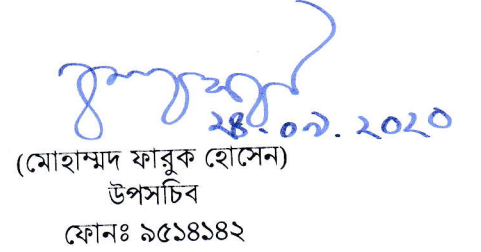 ২৪.০৯.২০২০
(মোহাম্মদ ফারুক হোসেন)
উপসচিব
ফোনঃ ৯৫১৪১৪২